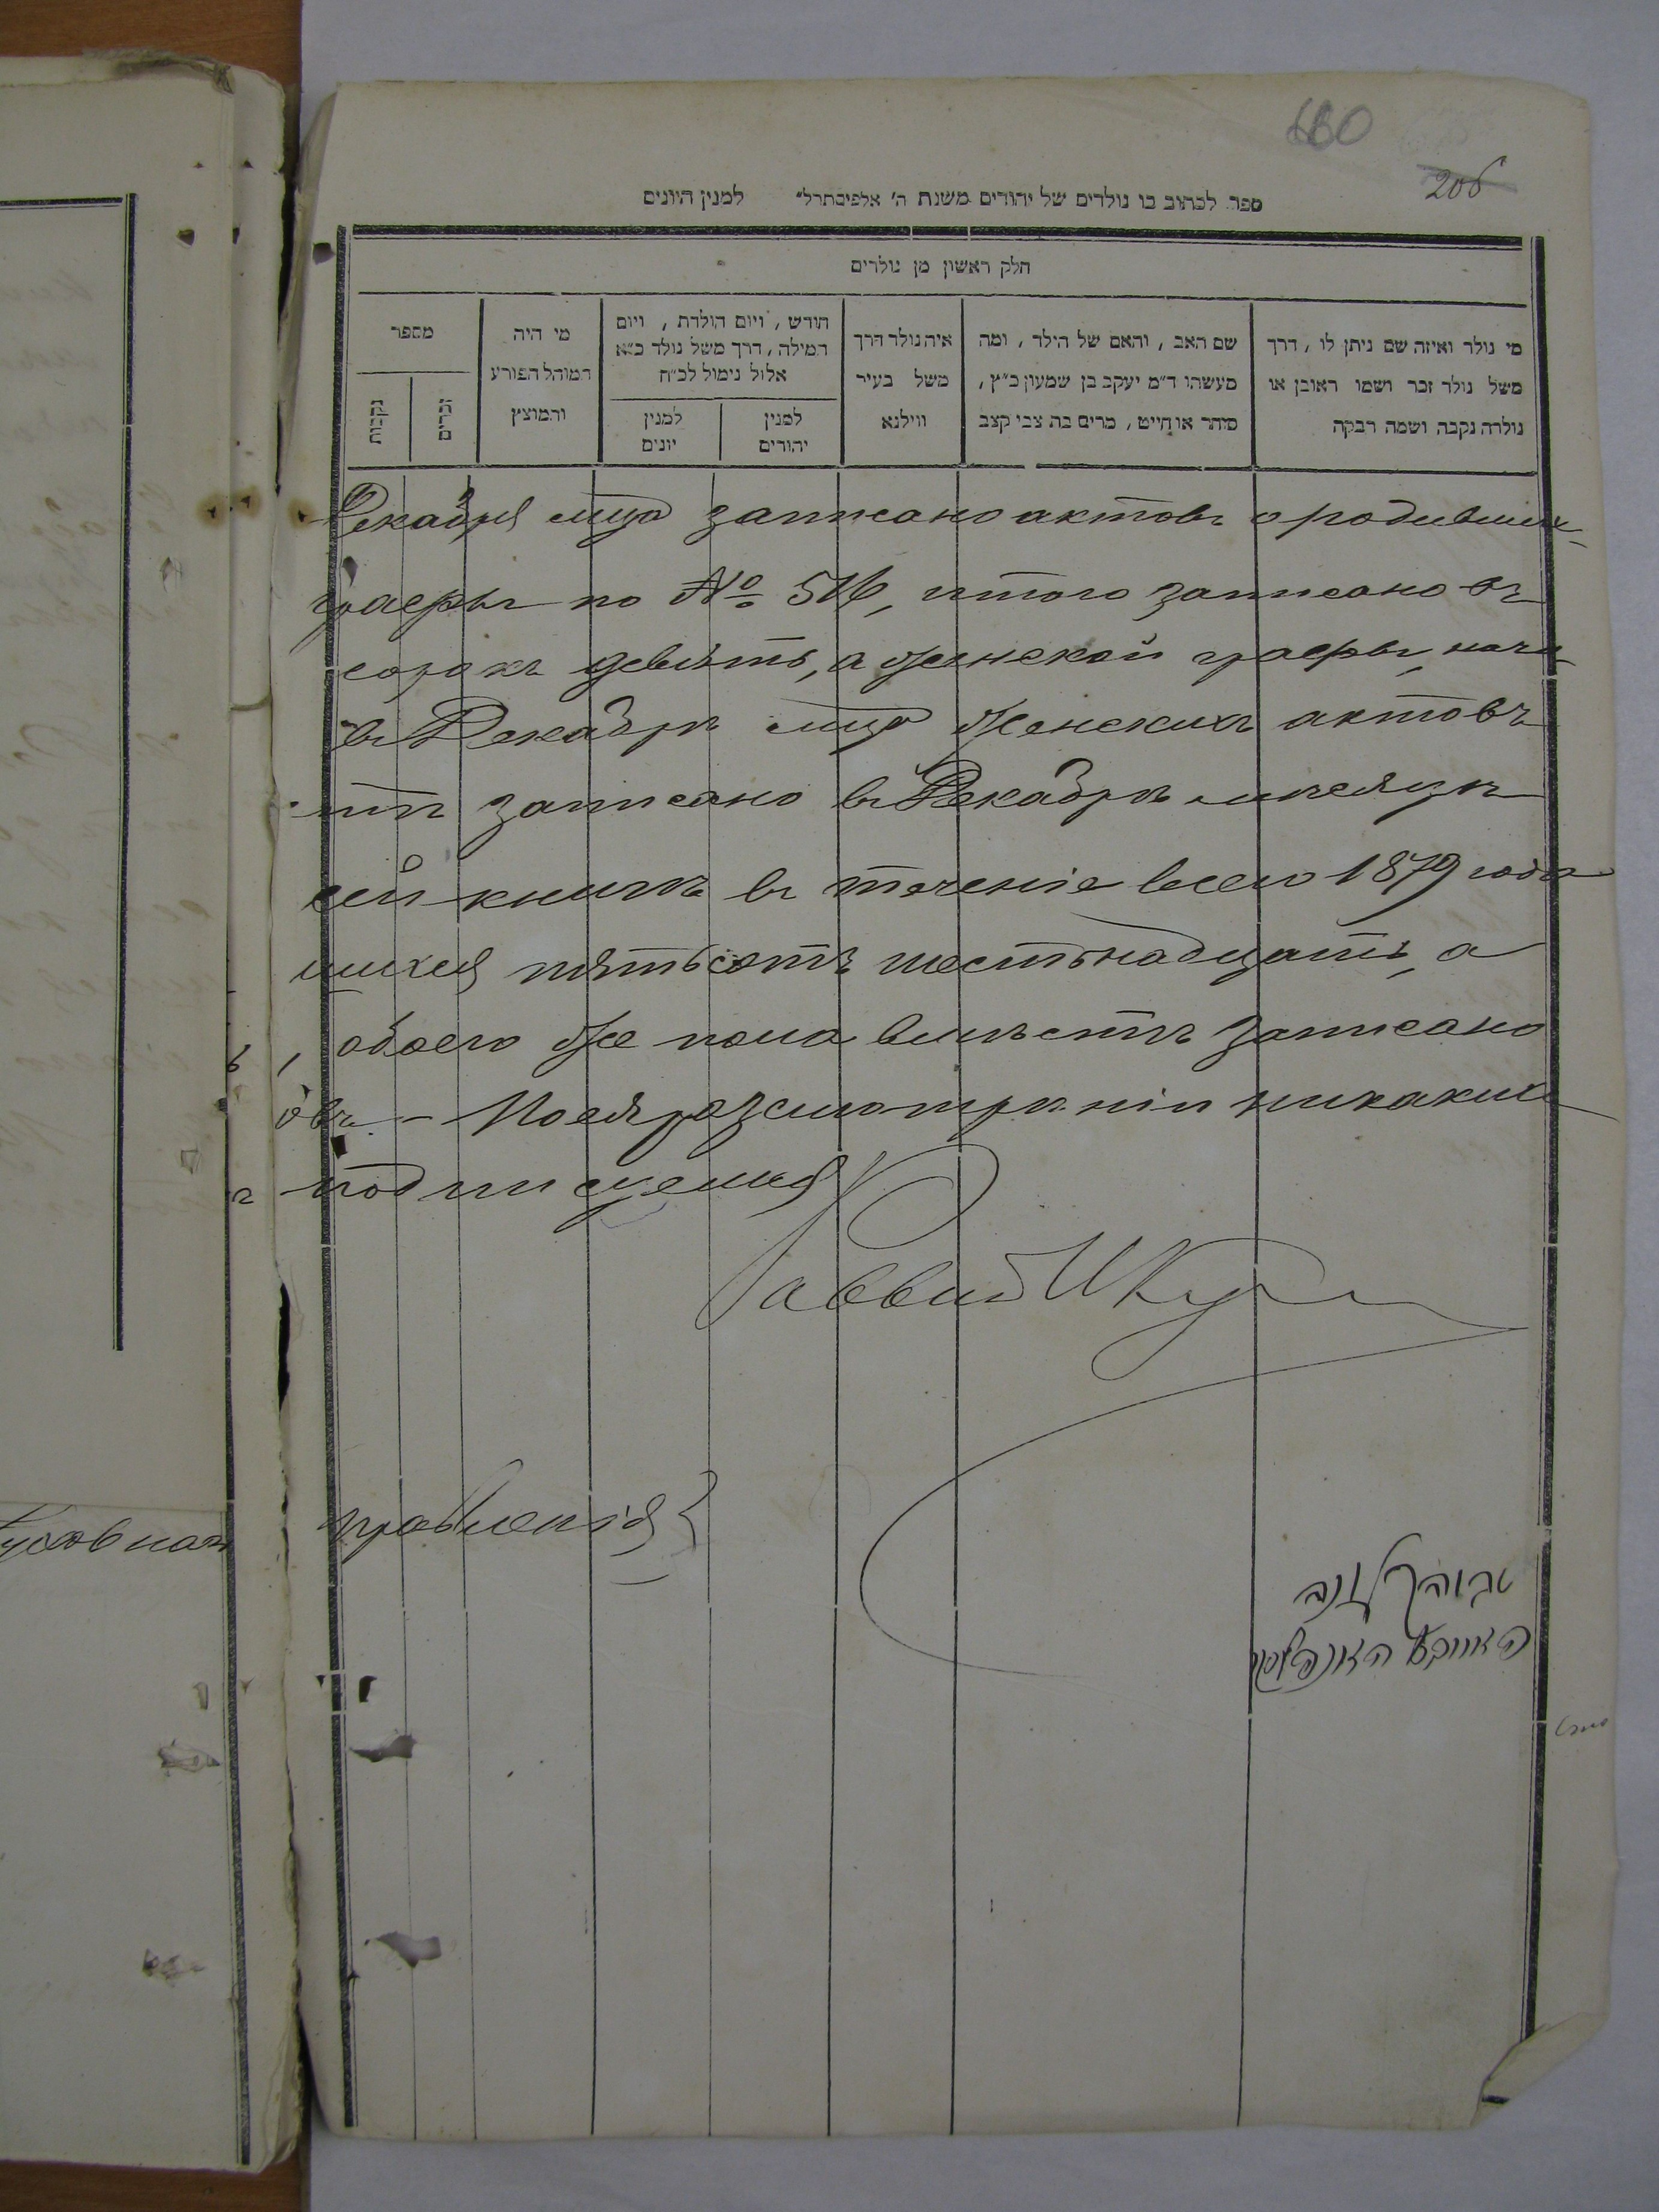 460
206
ספר לכתוב בו נולדים של יהודים משנת ה׳ אלפיםתרל״ למנין היונים
חלק ראשון מן נולדים
מי נולד ואיזה שם ניתן לו, דרך
משל נולד זכר ושמו ראובן או
נולדה נקבה ושמה רבקה
שם האב, והאם של הילד, ומה
מעשהו ד״מ יעקב בן שמעון כ״ץ,
סוחר או חייט, מרים בת צבי קצב
איה נולד דרך
משל בעיר
ווילנא
חודש, ויום הולדת, ויום
המילה, דרך משל נולד כ״א
אלול נימול לכ״ח
למנין
יהודים
למנין
יונים
מי היה
המוהל הפורע
והמוצץ
מספר
זכרים
נקבות
Декабря мца записано актовъ о родивших-
графы по № 516, итого записано въ
сорокъ девять, а женской графы, начи
въ Декабрѣ мцѣ женскихъ актовъ
ти записано въ Декабрѣ мѣсяцѣ
сей книгѣ въ теченіе всего 1879 года
шихся пятьсотъ шестьнадцать, а
обоего же пола вмѣстѣ записано
овъ. — По ея разсмотрѣніи никакихъ
подпишемся
Раввинъ
правленія